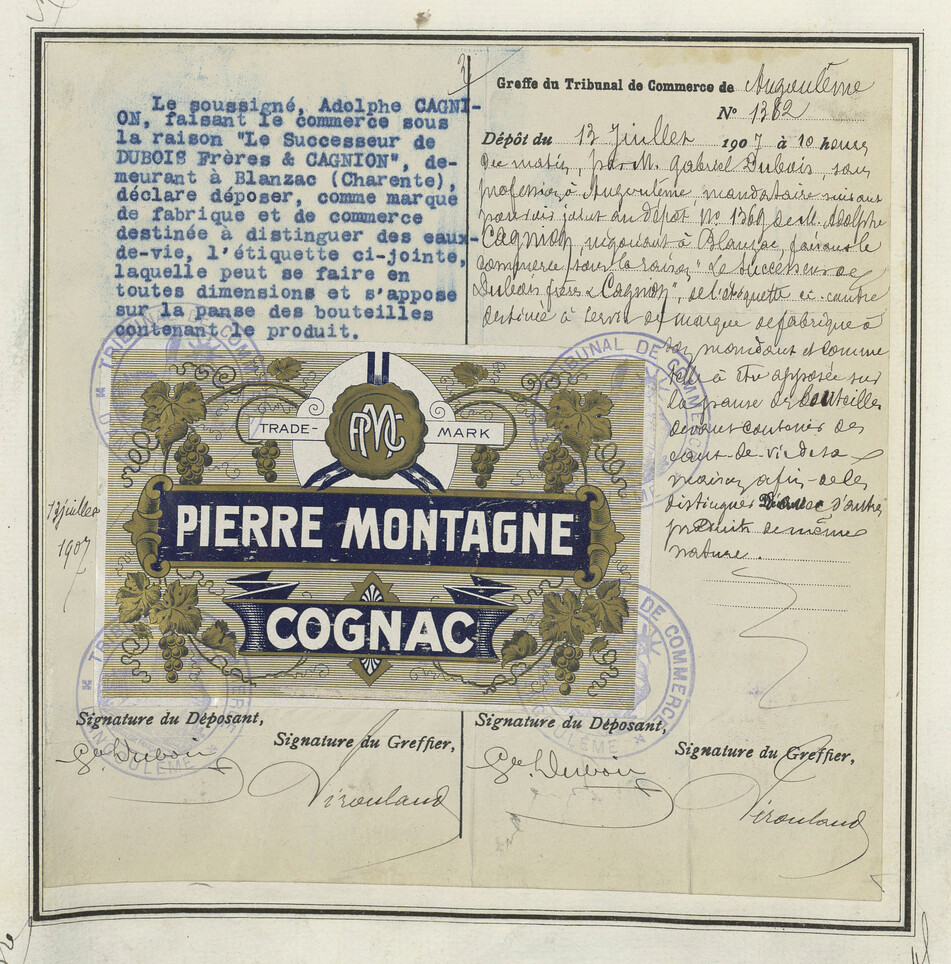 Le soussigné, Adolphe CAGNI-
ON, faisant le commerce sous
la raison "Le Successeur de
DUBOIS Frères & CAGNION", de-
meurant à Blanzac (Charente),
déclare déposer, comme marque
de fabrique et de commerce
destinée à distinguer des eaux-
de-vie, l'étiquette ci-jointe,
laquelle peut se faire en
toutes dimensions et s'appose
sur la panse des bouteilles
contenant le produit.
Greffe du Tribunal de Commerce de Angoulême
N° 1382
Dépôt du 13 Juillet 1907 à 10 heures
du matin, par M. Gabriel Dubois, sans
profession à Angoulême, mandataire suivant
pouvoir joint au dépôt N° 1369 de M. Adolphe
Cagnion, négociant à Blanzac, faisant le
commerce sous la raison "Le Successeur de
Dubois frères & Cagnion", de l'étiquette ci-contre
destinée à servir de marque de fabrique à
son mandant et comme
telle à être apposée sur
la panse des bouteilles
devant contenir des
eaux-de-vie de sa
maison afin de les
distinguer d'autres
produits de même
nature.
13 juillet
1907
TRIBUNAL DE COMMERCE
TRIBUNAL DE COMMERCE
APMC
TRADE-MARK
PIERRE MONTAGNE
COGNAC
TRIBUNAL DE COMMERCE
ANGOULÊME
DE COMMERCE
ANGOULÊME
Signature du Déposant,
Signature du Greffier,
Signature du Déposant,
Signature du Greffier,
Ge. Dubois
Ge. Dubois